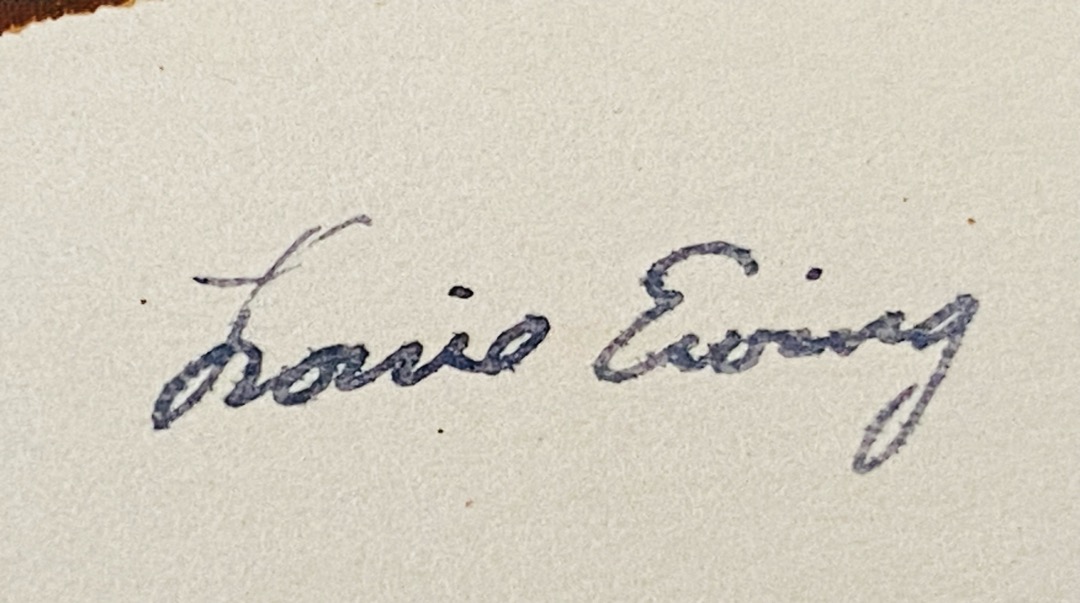 Louie Ewing